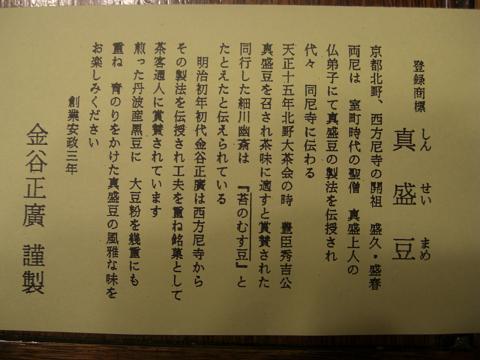 登録商標
真盛豆
しんせいまめ
京都北野、西方尼寺の開祖 盛久・盛春
両尼は 室町時代の聖僧 真盛上人の
仏弟子にて真盛豆の製法を伝授され
代々 同尼寺に伝わる
天正十五年北野大茶会の時 豊臣秀吉公
真盛豆を召され茶味に適すと賞賛された
同行した細川幽斎は 『苔のむす豆』と
たとえたと伝えられている
明治初年初代金谷正廣は西方尼寺から
その製法を伝授され工夫を重ね銘菓として
茶客通人に賞賛されています
煎った丹波産黒豆に 大豆粉を幾重にも
重ね 青のりをかけた真盛豆の風雅な味を
お楽しみください
創業安政三年
金谷正廣 謹製